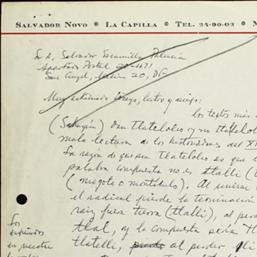 SALVADOR NOVO • LA CAPILLA • TEL. 24-90-03 •
Sr. D. Salvador Escamilla
Apartado Postal 20-1071
San Angel, México 20, DF
Muy estimado amigo, lector y
los textos más
(Sahagún) Dan Tlatelolco y no
mala lectura de los historiadores del
La razón de que sea Tlatelolco es que
palabra compuesta no es tlalli (
(mogote o montículo). Al unirse
el radical pierde la terminación
raíz fuera tierra (tlalli), al
tlal, y la compuesta sería
tlatelli, al perder el li
Los
en nuestra